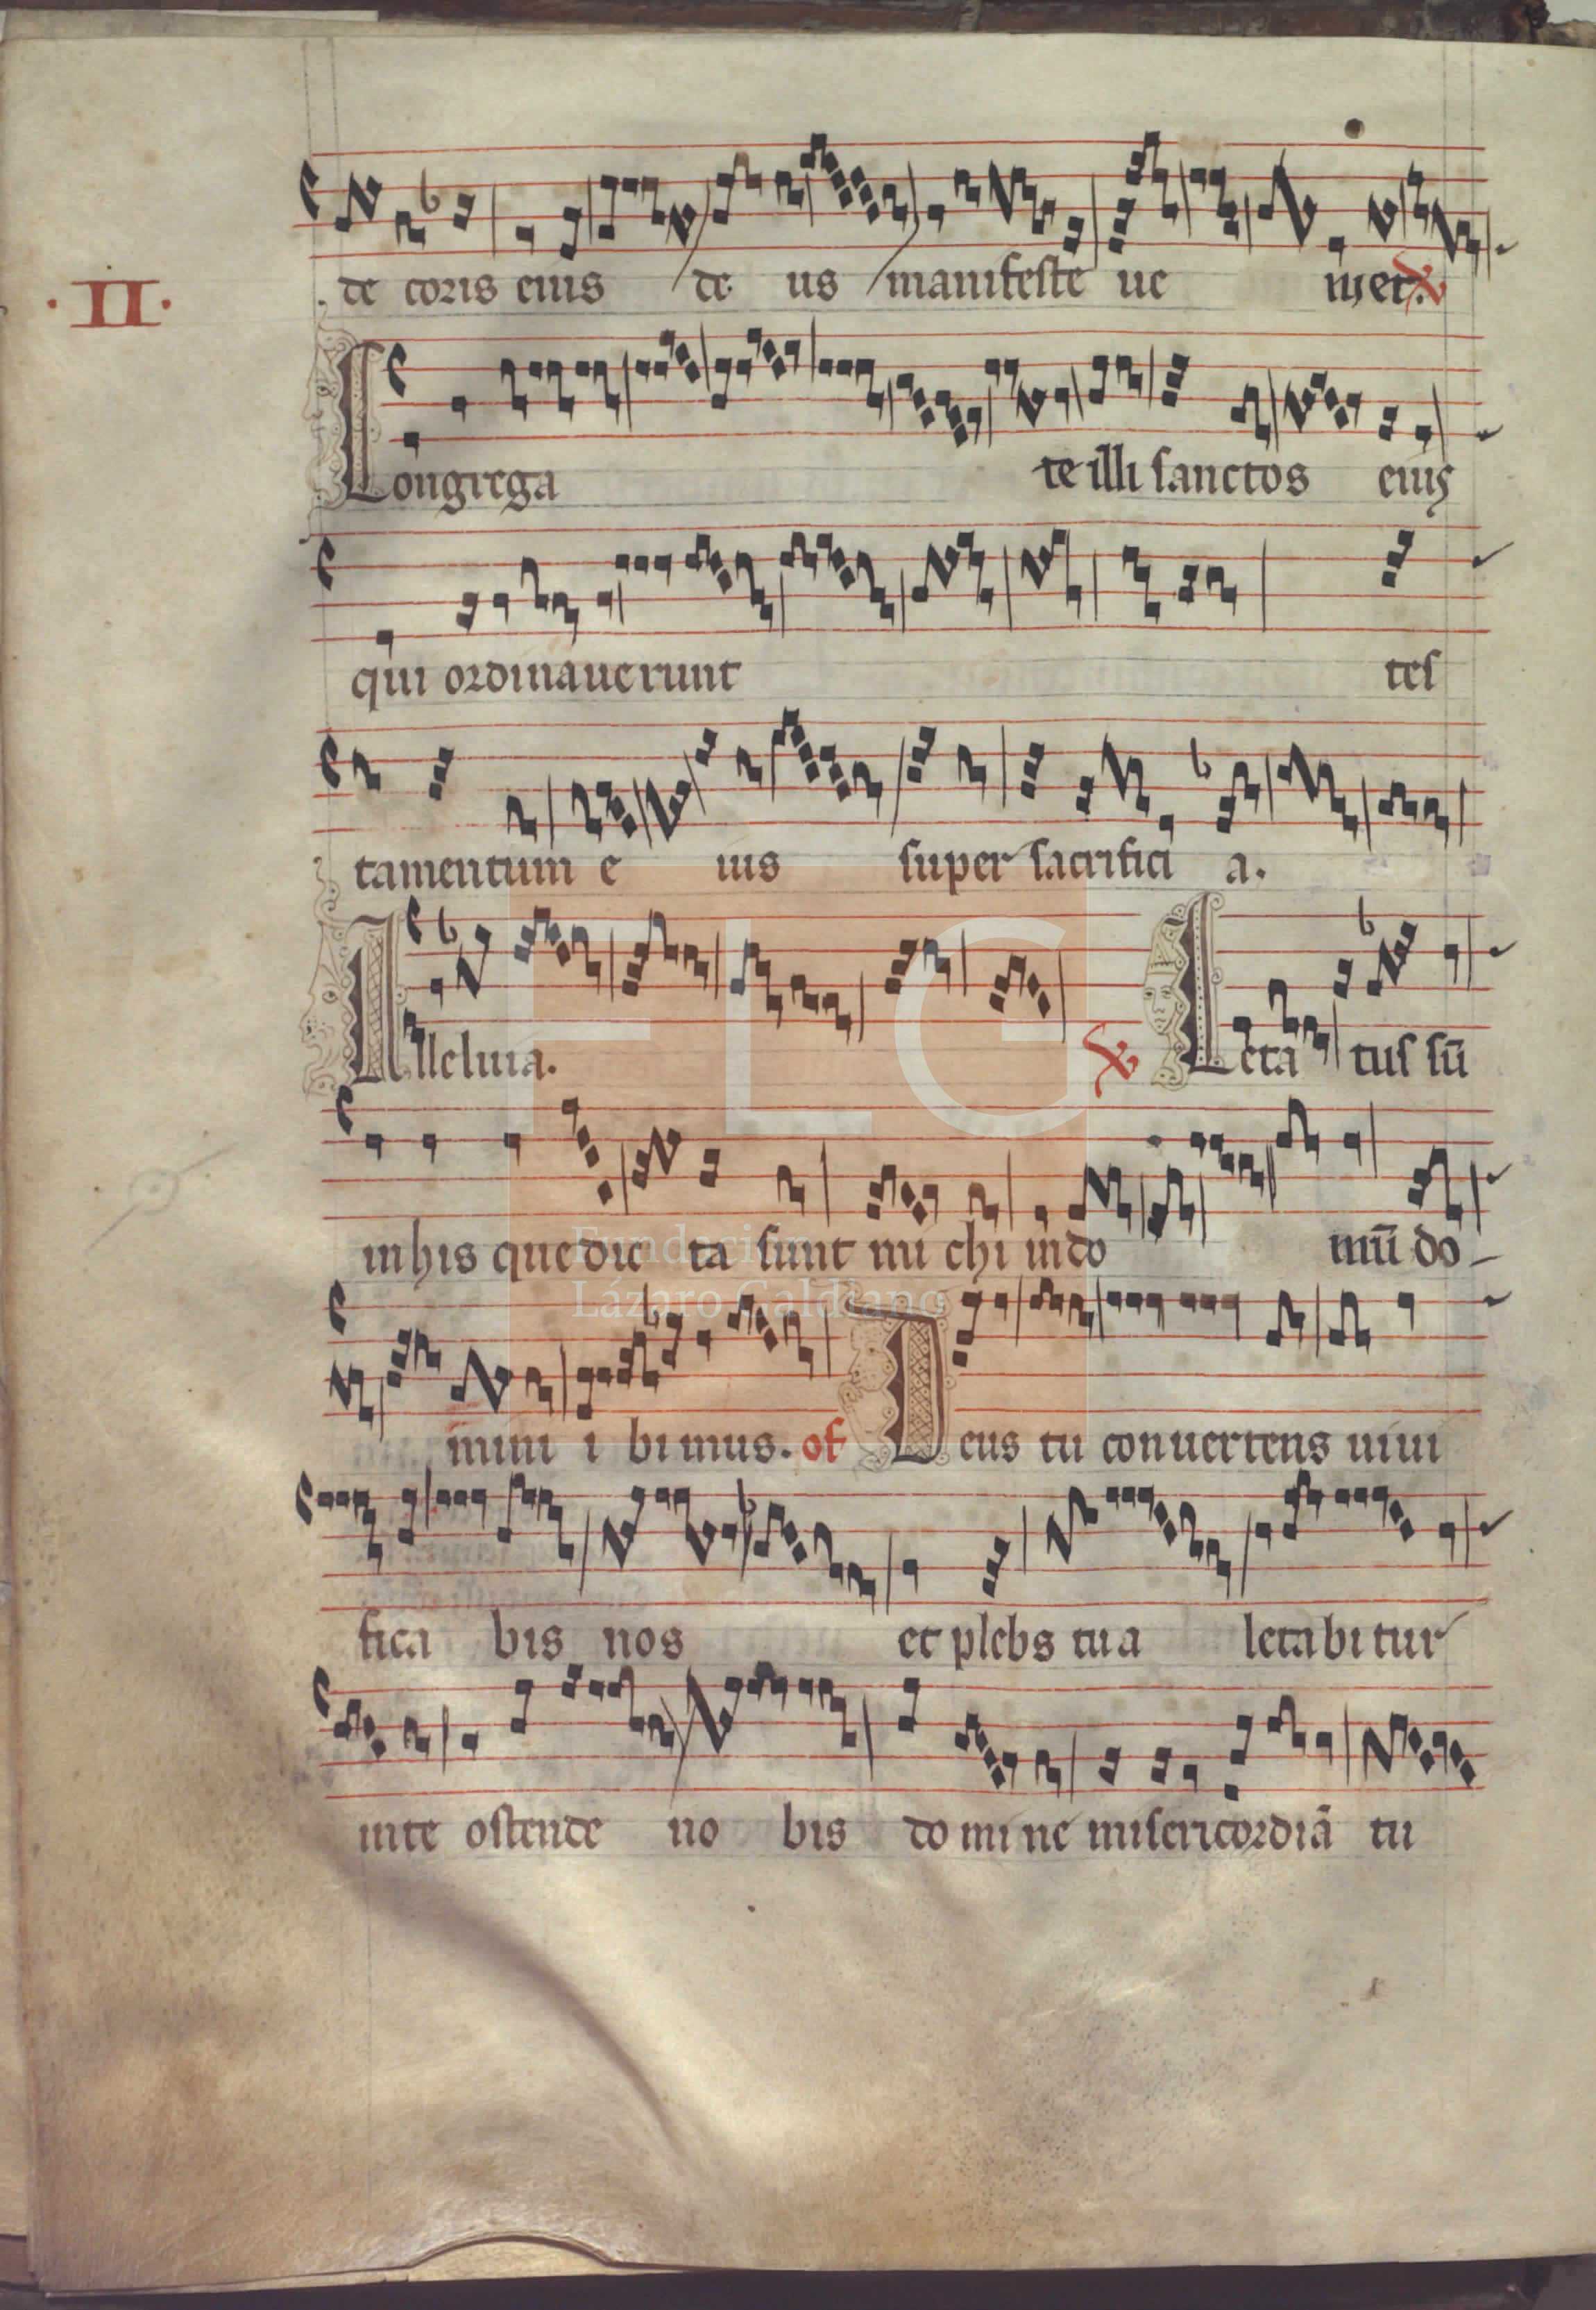 ·II·
de coris eius de us manifeste ue niet. ℣
Congrega te illi sanctos eius
qui ordinauerunt tes
tamentum e ius super sacrifici a.
Alleluia. ℣ Leta tus sū
in his que dic ta sunt mi chi in do mū do-
mini i bi mus. of Deus tu conuertens uiui
fica bis nos et plebs tu a letabitur
inte ostende no bis do mi ne misericordiā tu
FLG
Fundación
Lázaro Galdiano